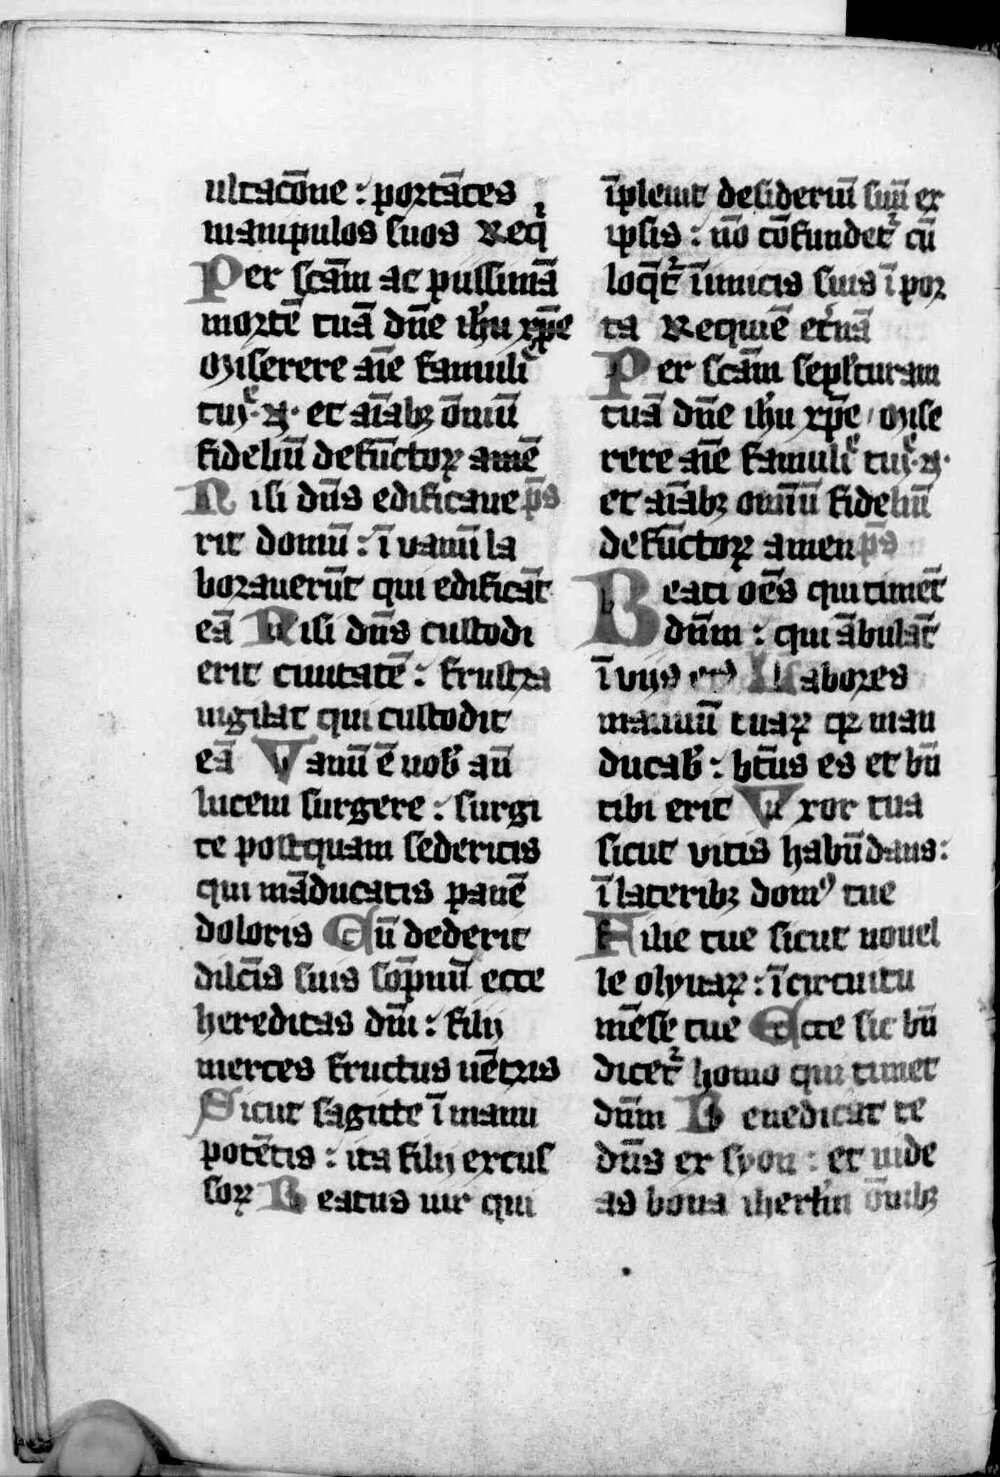 ultacōne : portātes
manipulos suos Req̄
Per scām ac pijssimā
mortē tuā dn̄e ihū xp̄e
Miserere aīe famuli
tui · N · et aīabꝫ om̄iū
fideliū defūctoꝝ amē
Nisi dn̄s edificaue p̄s
rit domū : ī vanū la
borauerūt qui edificāt
eā Nisi dn̄s custodi
erit ciuitatē : frustra
uigilat qui custodit
eā Vanū ē uob̄ an̄
lucem surgere : surgi
te postquam sederitis
qui māducatis panē
doloris Cū dederit
dilc̄is suis sop̄nū ecce
hereditas dn̄i : filij
merces fructus uētris
Sicut sagitte ī manu
potētis : ita filij excus
soꝝ Beatus uir qui
īpleuit desideriū suū ex
ipsis : nō cōfundet᷑ cū
loq̄t᷑ īimicis suis ī por
ta Requiē et̄nā
Per scām sepl̄turam
tuā dn̄e ihū xp̄e / Mise
rere aīe famuli tui · N ·
et aīabꝫ omniū fideliū
defūctoꝝ amen p̄s
Beati oēs qui timēt
dn̄m : qui ābulāt
ī vijs eiꝰ Labores
manuū tuaꝝ qꝛ man
ducab̄ : bt̄us es et bn̄
tibi erit Vxor tua
sicut vitis habūdans :
ī lateribꝫ domꝰ tue
Filie tue sicut nouel
le olyuaꝝ : ī circuitu
mēse tue Ecce sic bn̄
dicet᷑ homo qui timet
dn̄m Benedicat te
dn̄s ex syon : et uide
as bona iherl̄m om̄ibꝫ